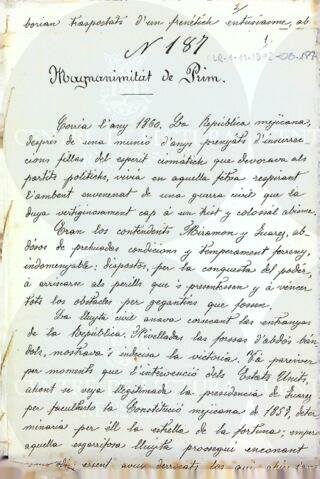 borian traspostats d'un frenétich entusiasme, ab
Nº 187
LR-1-11-1892-06-187
Magnanimitát de Prim.
Corría l'any 1860. La República mejicana,
després de una munió d'anys prenyats d'insurrec-
cions fillas del esperit cismátich que devorava als
partits politichs, vivia en aquella fetxa respirant
l'ambent envenenat de una guerra civil que la
duya vertiginosament cap á un trist y colossal abisme.
Eran los contendents Miramon y Juarez, ab-
dósos de preluadas condicions y temperament fereny,
indomenyable; dispostos, per la conquesta del poder,
á arriscarse als perills que's presentessen y á véncer
tots los obstacles per gegantins que fossen.
La lluyta civil anava corsecant las entranyas
de la República; Nivelladas las forsas d'abdós ban-
dols, mostrava's indecisa la victoria. Va pareixer
per moments que l'intervenció dels Estats Units,
ahont se veya llegitimada la presidencia de Juarez
per facultarlo la Constitució mejicana de 1857, deter-
minaria per éll la estrella de la fortuna; empero
aquella esgarrifosa lluyta prosegui enconant